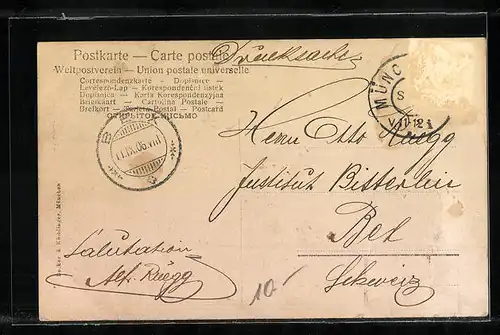 Postkarte — Carte postale
Drucksache
Weltpostverein — Union postale universelle
Correspondenzkarte - Dopisnice -
Levelező-Lap - Korespondenční lístek
Dopisnica - Karta Korespondencyjna
Brievkaart - Cartolina Postale -
Brefkort - Tarjeta Postal - Postcard
ОТКРЫТОЕ ПИСЬМО
MÜNC
S
VII 12
11.IX.06.VIII
Herrn Otto Rüegg
Institut Bitterlin
Bex
Schweiz
Salutation
Alf. Rüegg
10-